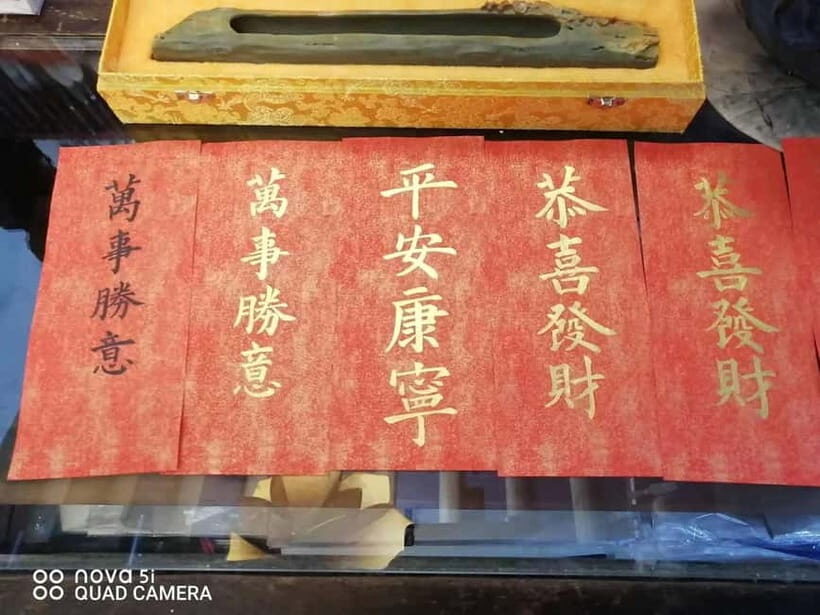 萬事勝意
萬事勝意
平安康寧
恭喜發財
恭喜發財
nova 5i
QUAD CAMERA